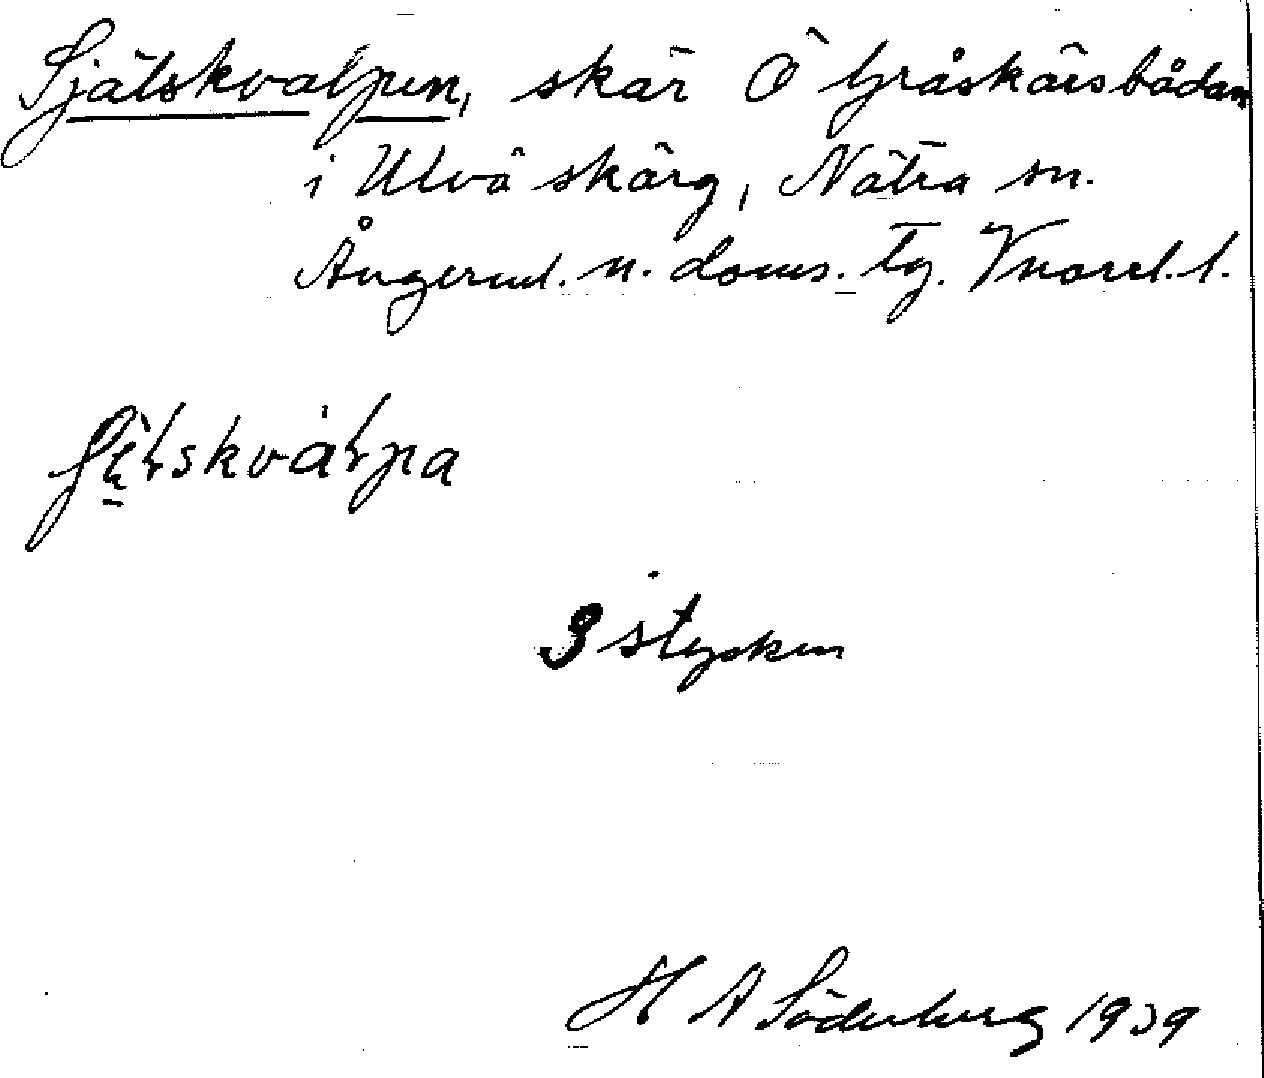 Själskvalpen, skär Ö Gråskärsbådan
i Ulvö skärg, Nätra sn.
Ångerml. n. doms. tg. Vnorrl. l.
3 stycken
H A Söderberg 1939